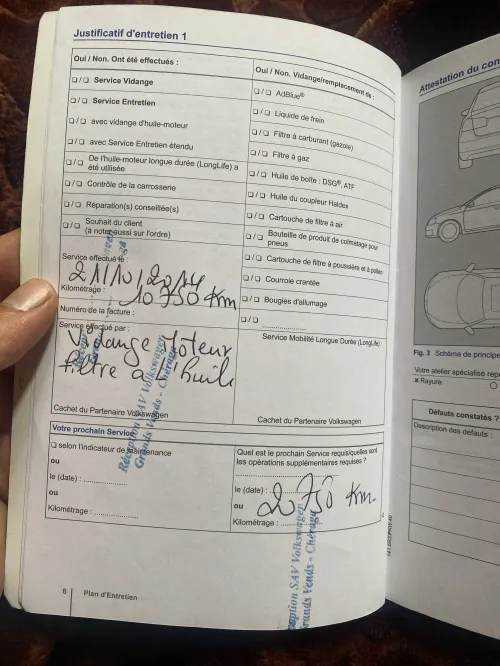 Justificatif d'entretien 1
Oui / Non. Ont été effectués :
❏ / ❏ Service Vidange
❏ / ❏ Service Entretien
❏ / ❏ avec vidange d'huile-moteur
❏ / ❏ avec Service Entretien étendu
❏ / ❏ De l'huile-moteur longue durée (LongLife) a
été utilisée
❏ / ❏ Contrôle de la carrosserie
❏ / ❏ Réparation(s) conseillée(s)
❏ / ❏ Souhait du client
(à noter aussi sur l'ordre)
Service effectué le :
21/10/2014
Kilométrage :
10 750 Km
Numéro de la facture :
Service effectué par :
Vidange Moteur
filtre a huile
Cachet du Partenaire Volkswagen
Oui / Non. Vidange/remplacement de :
❏ / ❏ AdBlue®
❏ / ❏ Liquide de frein
❏ / ❏ Filtre à carburant (gazole)
❏ / ❏ Filtre à gaz
❏ / ❏ Huile de boîte : DSG®, ATF
❏ / ❏ Huile du coupleur Haldex
❏ / ❏ Cartouche de filtre à air
❏ / ❏ Bouteille de produit de colmatage pour
pneus
❏ / ❏ Cartouche de filtre à poussière et à pollen
❏ / ❏ Courroie crantée
❏ / ❏ Bougies d'allumage
❏ / ❏ ....................
Service Mobilité Longue Durée (LongLife) :
Cachet du Partenaire Volkswagen
Réception SAV Volkswagen
Grands Vents - Chéraga
Votre prochain Service
❏ selon l'indicateur de maintenance
ou
le (date) : ....................
ou
Kilométrage : ....................
Quel est le prochain Service requis/quelles sont
les opérations supplémentaires requises ?
....................
le (date) :
ou
Kilométrage : ....................
2 750 Km
Réception SAV Volkswagen
Grands Vents - Chéraga
6 Plan d'Entretien
Attestation du con
Fig. 3 Schéma de principe
Votre atelier spécialisé repè
× Rayure
Défauts constatés ?
Description des défauts :